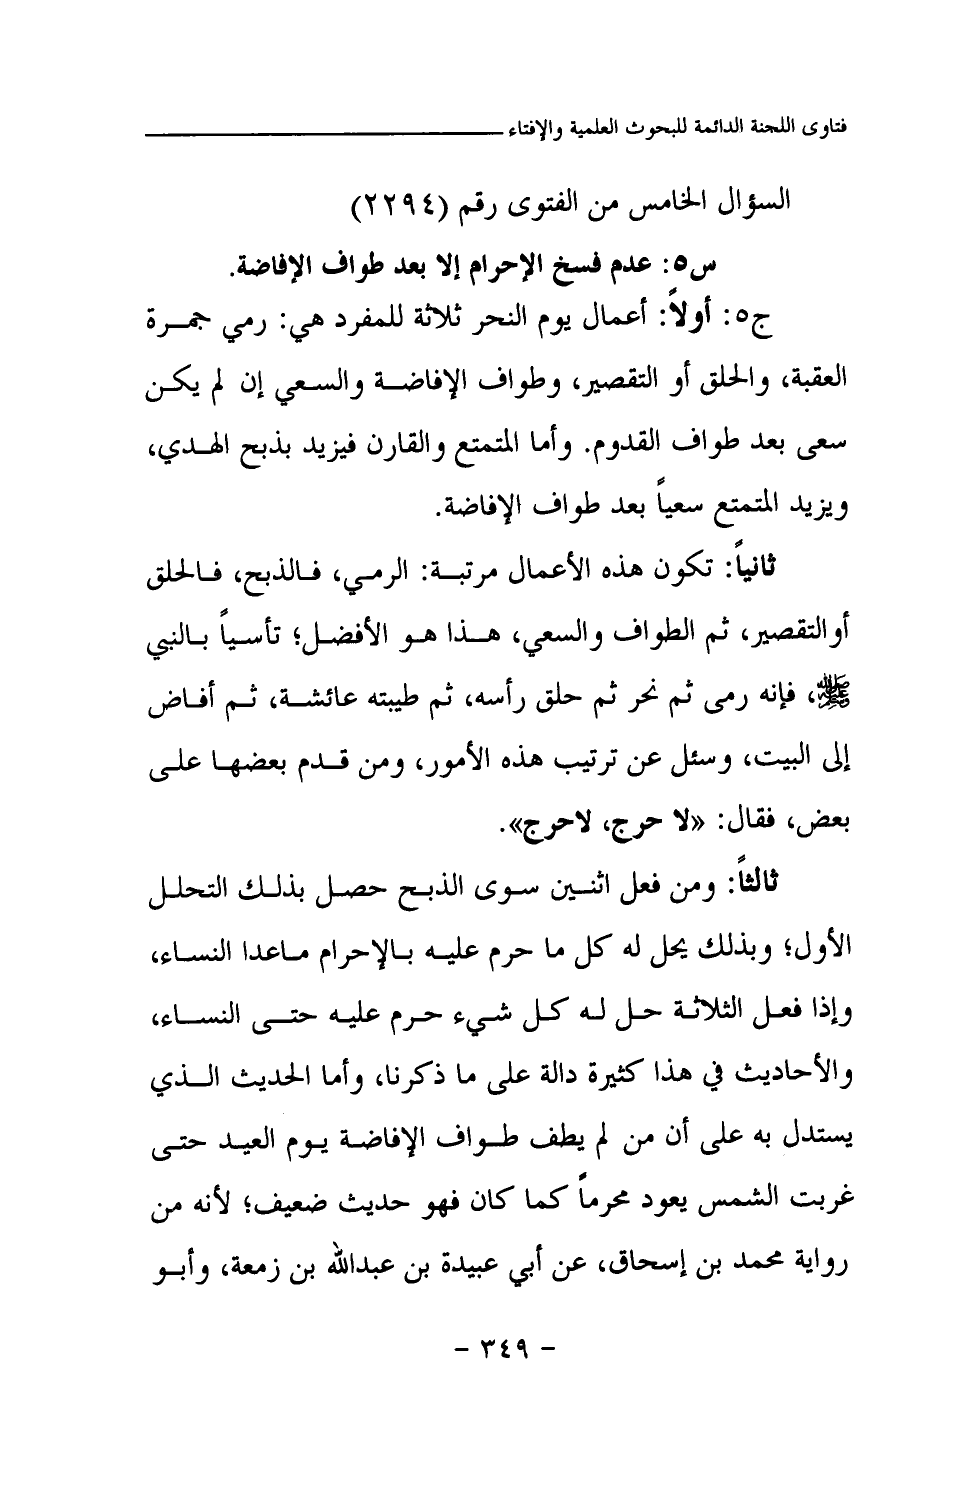 فتاوى اللجنة الدائمة للبحوث العلمية والإفتاء
السؤال الخامس من الفتوى رقم (٢٢٩٤)
س٥: عدم فسخ الإحرام إلا بعد طواف الإفاضة.
ج٥: أولاً: أعمال يوم النحر ثلاثة للمفرد هي: رمي جمرة
العقبة، والحلق أو التقصير، وطواف الإفاضة والسعي إن لم يكن
سعى بعد طواف القدوم. وأما المتمتع والقارن فيزيد بذبح الهدي،
ويزيد المتمتع سعياً بعد طواف الإفاضة.
ثانياً: تكون هذه الأعمال مرتبة: الرمي، فالذبح، فالحلق
أوالتقصير، ثم الطواف والسعي، هذا هو الأفضل؛ تأسياً بالنبي
ﷺ، فإنه رمى ثم نحر ثم حلق رأسه، ثم طيبته عائشة، ثم أفاض
إلى البيت، وسئل عن ترتيب هذه الأمور، ومن قدم بعضها على
بعض، فقال: «لا حرج، لاحرج».
ثالثاً: ومن فعل اثنين سوى الذبح حصل بذلك التحلل
الأول؛ وبذلك يحل له كل ما حرم عليه بالإحرام ماعدا النساء،
وإذا فعل الثلاثة حل له كل شيء حرم عليه حتى النساء،
والأحاديث في هذا كثيرة دالة على ما ذكرنا، وأما الحديث الذي
يستدل به على أن من لم يطف طواف الإفاضة يوم العيد حتى
غربت الشمس يعود محرماً كما كان فهو حديث ضعيف؛ لأنه من
رواية محمد بن إسحاق، عن أبي عبيدة بن عبدالله بن زمعة، وأبو
- ٣٤٩ -